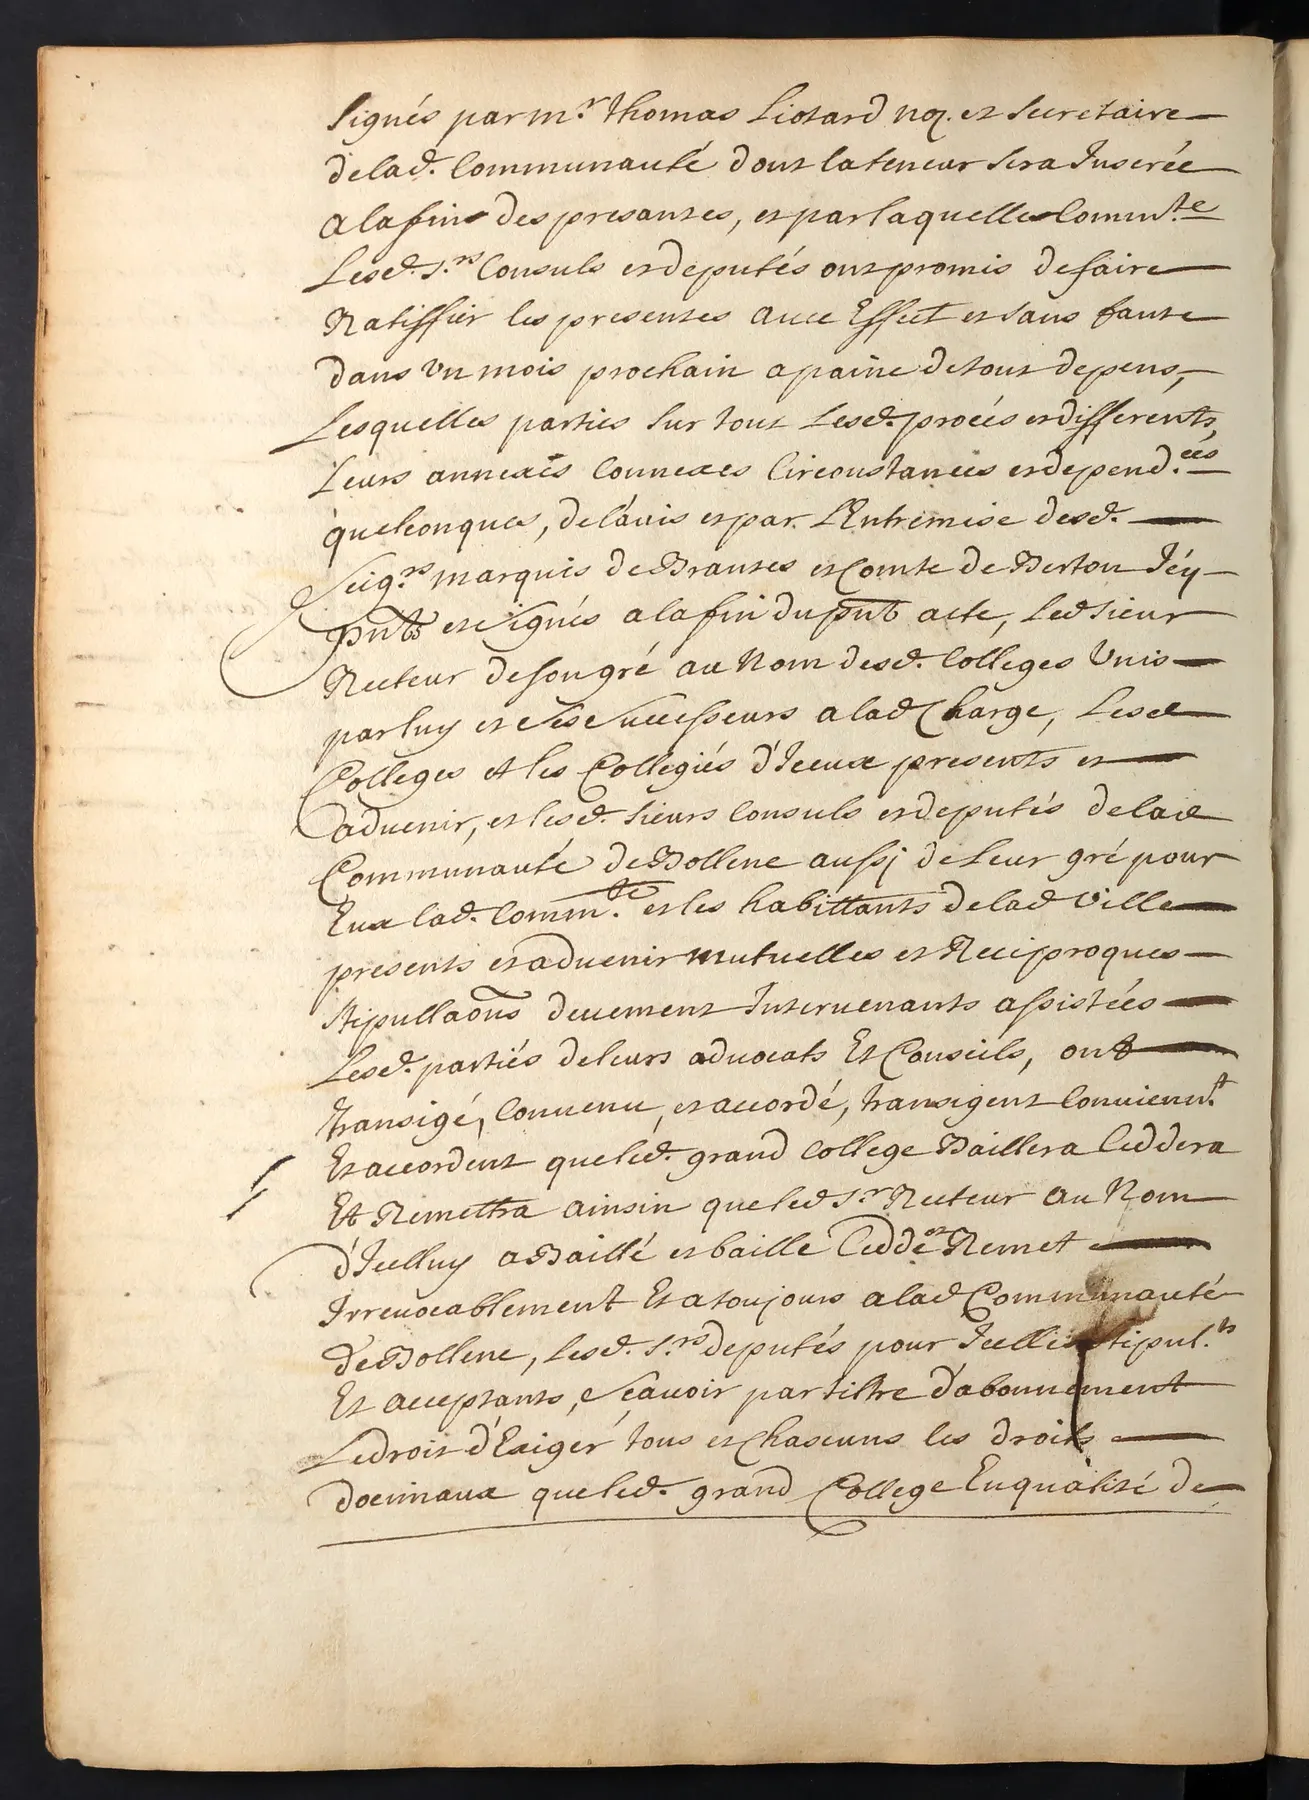 signés par m.r thomas Liotard no.re et secretaire
de lad. Communauté dont la teneur sera Inserée
a la fin des presantes, et par laquelle Commu.te
Lesd. s.rs Consuls et deputés ont promis de faire
Ratiffier les presentes avec Effect et sans faute
dans un mois prochain a paine de tous depens,
Lesquelles parties sur tout Lesd. procés et differents,
Leurs annexes connexes Circonstances et depend.ces
quelconques, de l'avis et par L'Entremise desd.
Seig.rs marquis de Brantes et Comte de Berton Icy
pnts et signés a la fin du pnt acte, Led sieur
Recteur de son gré au Nom desd. Colleges Unis
par luy et ses successeurs a lad Charge, Lesd
Colleges et les Collegiés d'Iceux presents et
advenir, et lesd. sieurs Consuls et deputés de lad
Communauté de Bollene aussj de Leur gré pour
Eux lad. Comm.té et les habittants de lad Ville
presents et advenir mutuelles et Reciproques
stipullaons deuement Intervenants assistées
Lesd. parties de leurs advocats Et Conseils, ont
transigé, Convenu, et accordé, transigent Convienn.t
Et accordent que led. grand College Baillera Ceddera
Et Remettra ainsin que led s.r Recteur au Nom
d'Icelluy a Baillé et baille Cedde et Remet
Irrevocablement Et a toujours a lad Communauté
de Bollene, Lesd. s.rs deputés pour Icelle stipul.ts
Et acceptants, sçavoir par tiltre d'abonnement
Le droit d'Exiger tous et Chascuns les droits
decimaux que led. grand College En qualité de